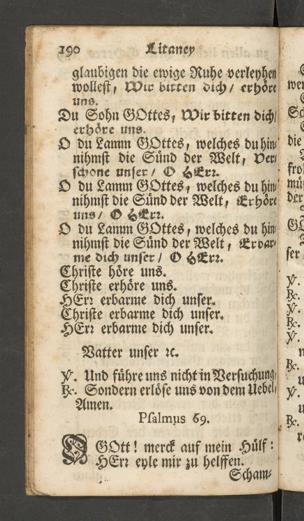 190 Litaney
glaubigen die ewige Ruhe verleyhen
wollest, Wir bitten dich/ erhöre
uns.
Du Sohn GOttes, Wir bitten dich/
erhöre uns.
O du Lamm GOttes, welches du hin-
nihmst die Sünd der Welt, Ver-
schone unser / O HErr.
O du Lamm GOttes, welches du hin-
nihmst die Sünd der Welt, Erhöre
uns / O HErr.
O du Lamm GOttes, welches du hin-
nihmst die Sünd der Welt, Erbar-
me dich unser / O HErr.
Christe höre uns.
Christe erhöre uns.
HErr erbarme dich unser.
Christe erbarme dich unser.
HErr erbarme dich unser.
Vatter unser ꝛc.
℣. Und führe uns nicht in Versuchung.
℟. Sondern erlöse uns von dem Uebel,
Amen.
Psalmus 69.
GOtt! merck auf mein Hülf:
HErr eyle mir zu helffen.
Scham-